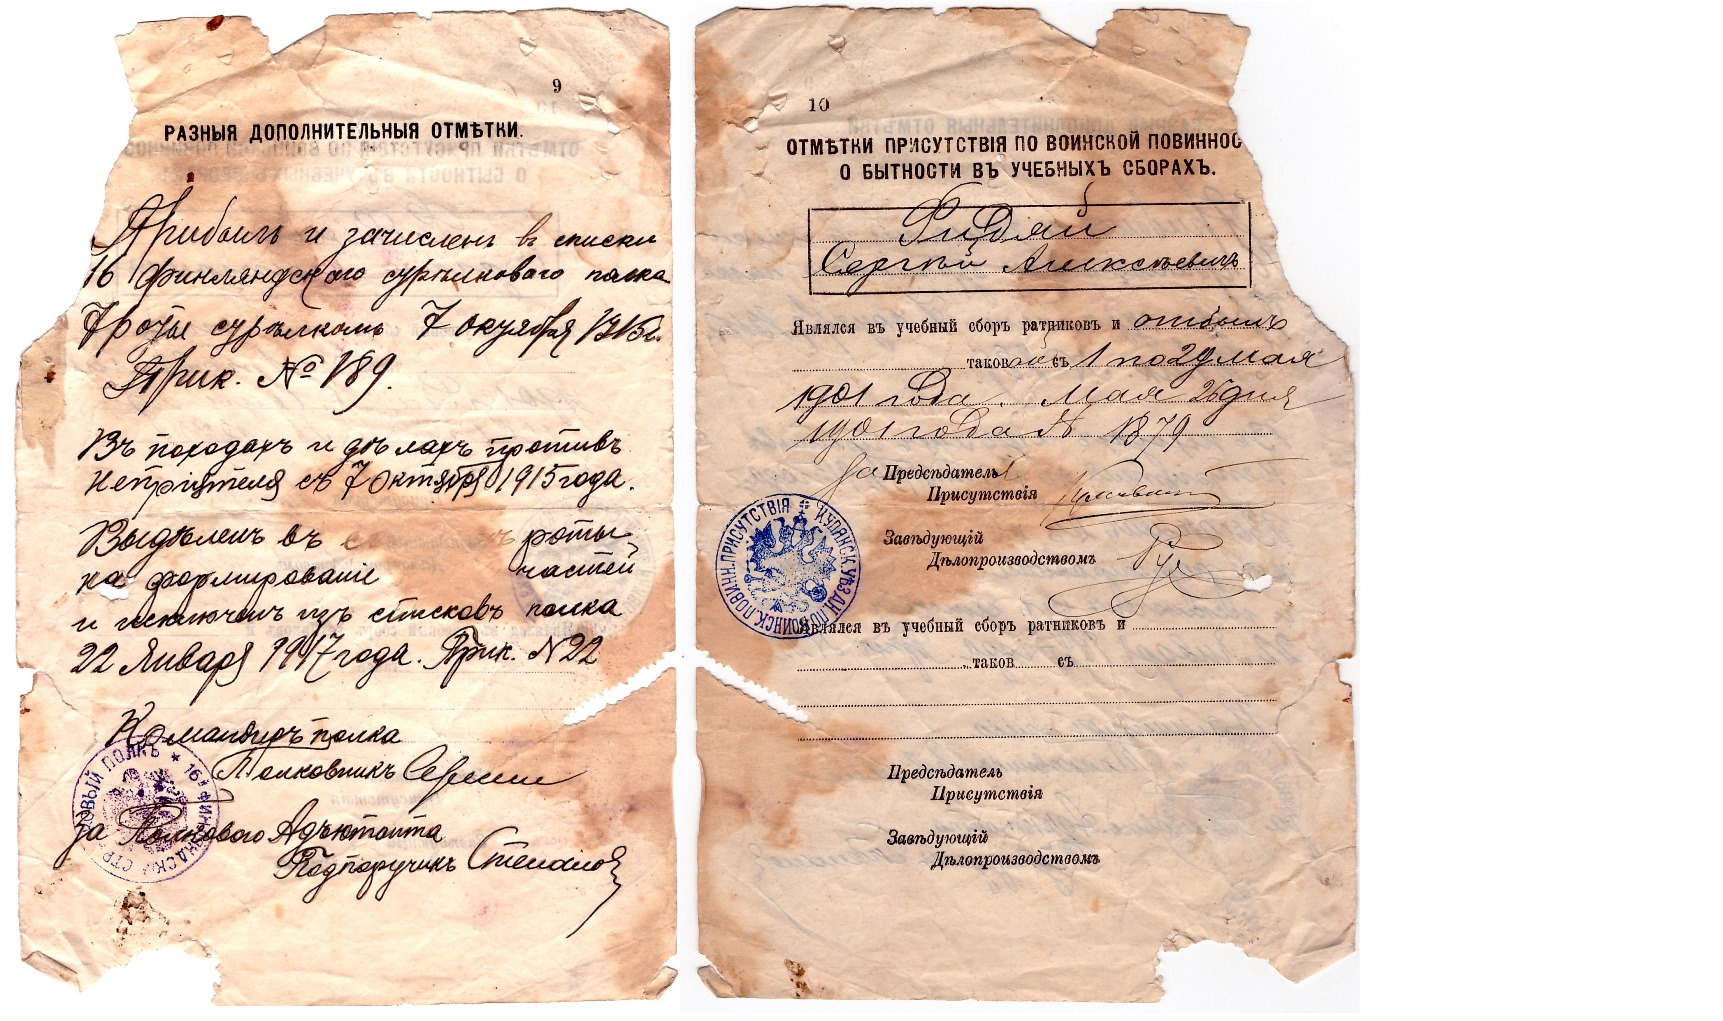 9
РАЗНЫЯ ДОПОЛНИТЕЛЬНЫЯ ОТМѢТКИ.
Прибылъ и зачисленъ въ списки
16 Финляндского стрѣлкового полка
7 роты стрѣлкомъ 7 октября 1915г.
Прик. № 189.
Въ походахъ и дѣлахъ противъ
непріятеля съ 7 октября 1915 года.
Выдѣленъ въ роты
на формированіе частей
и исключенъ изъ списковъ полка
22 Января 1917 года. Прик. N 22
Командиръ полка
Полковникъ
За Полкового Адъютанта
Подпоручикъ Степанов
10
ОТМѢТКИ ПРИСУТСТВІЯ ПО ВОИНСКОЙ ПОВИННОС
О БЫТНОСТИ ВЪ УЧЕБНЫХЪ СБОРАХЪ.
Сергѣй Алексѣевичъ
Являлся въ учебный сборъ ратниковъ и отбылъ
таковой съ 1 по 29 мая
1901 года. Мая 26 дня
1901 года № 1879
За Предсѣдатель
Присутствія
Завѣдующій
Дѣлопроизводствомъ
КУПЯНСК. УѢЗДН. ПО ВОИНСК. ПОВИНН. ПРИСУТСТВІЯ
Являлся въ учебный сборъ ратниковъ и
таков съ
Предсѣдатель
Присутствія
Завѣдующій
Дѣлопроизводствомъ